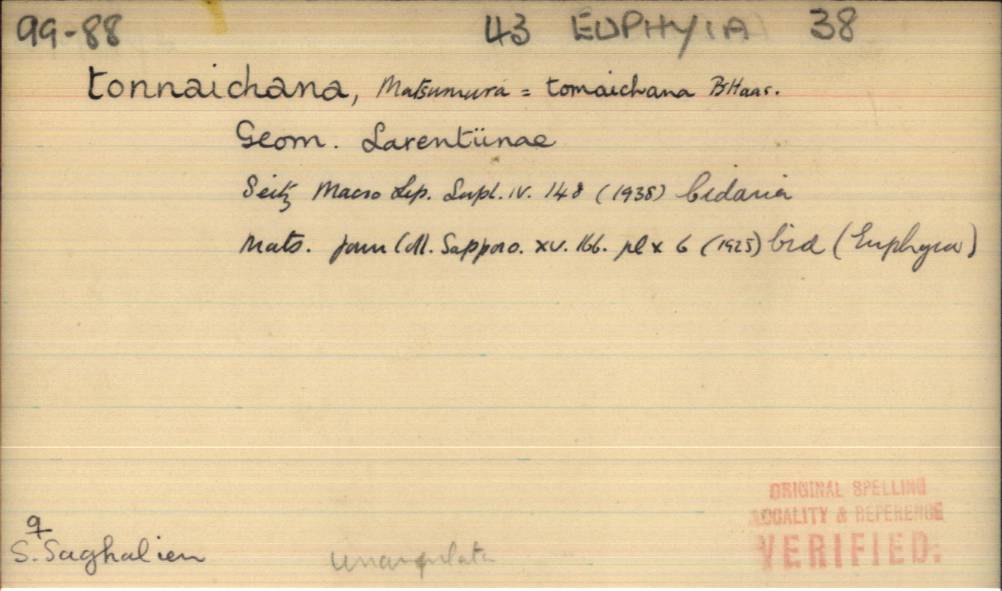 99-88 43 EUPHYIA 38
tonnaichana, Matsumura = tomaichana B Haas.
Geom. Larentiinae
Seitz Macro Lep. Supl. IV. 148 (1938) Cidaria
Mats. Journ Coll. Sapporo. XV. 166. pl X 6 (1925) Cid (Euphyia)
♀
S. Saghalien
unangulata
ORIGINAL SPELLING
LOCALITY & REFERENCE
VERIFIED.